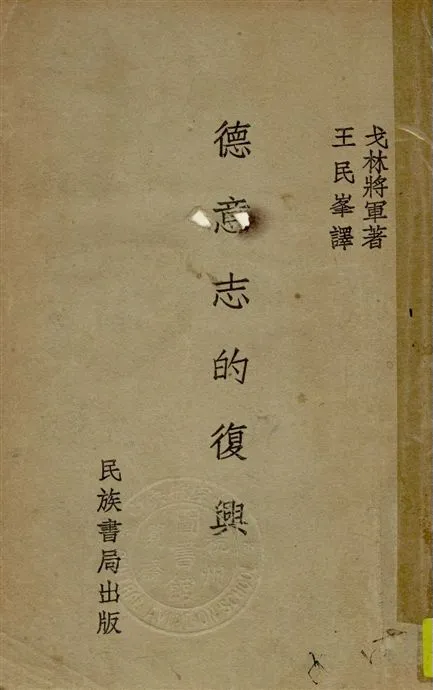 戈林將軍著
王民峯譯
德意志的復興
民族書局出版